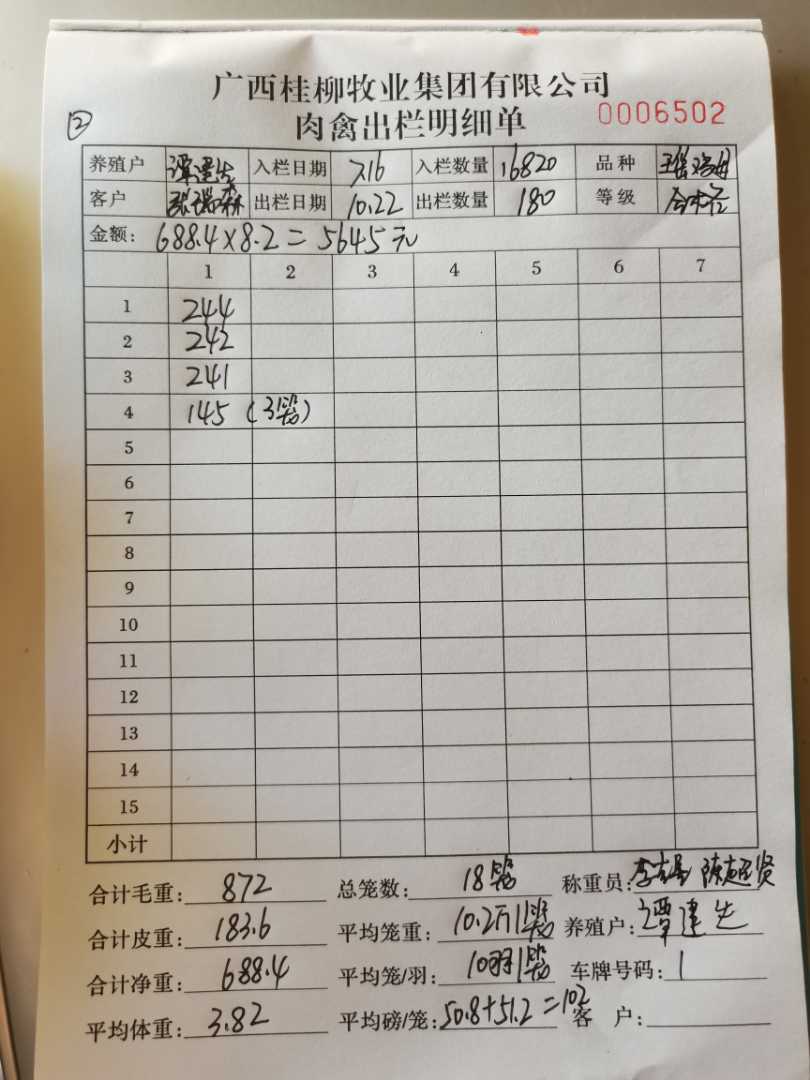 广西桂柳牧业集团有限公司
② 肉禽出栏明细单 0006502
养殖户 谭建生 入栏日期 7.16 入栏数量 16820 品种
客户 张瑞森 出栏日期 10.22 出栏数量 180 等级
金额: 688.4×8.2=5645元
1 2 3 4 5 6 7
1 244
2 242
3 241
4 145 (3笼)
5
6
7
8
9
10
11
12
13
14
15
小计
合计毛重: 872 总笼数: 18笼 称重员: 陈超贤
合计皮重: 183.6 平均笼重: 10.2斤/笼 养殖户: 谭建生
合计净重: 688.4 平均笼/羽: 10羽/笼 车牌号码:
平均体重: 3.82 平均磅/笼: 50.8+51.2=102 客 户: